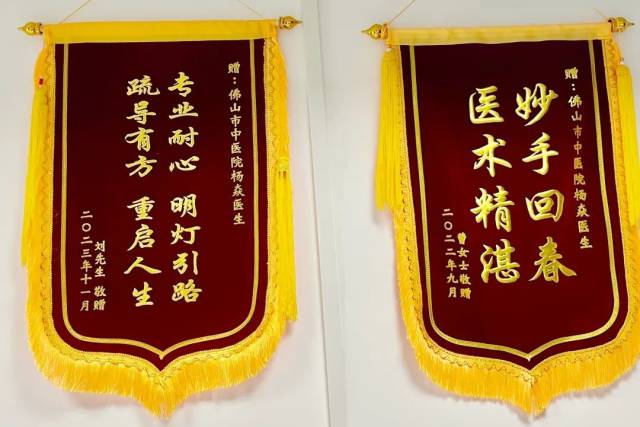 赠：佛山市中医院杨焱医生
专业耐心 明灯引路
疏导有方 重启人生
刘先生 敬赠
二〇二三年十一月
赠：佛山市中医院杨焱医生
妙手回春
医术精湛
曹女士敬赠
二〇二二年九月